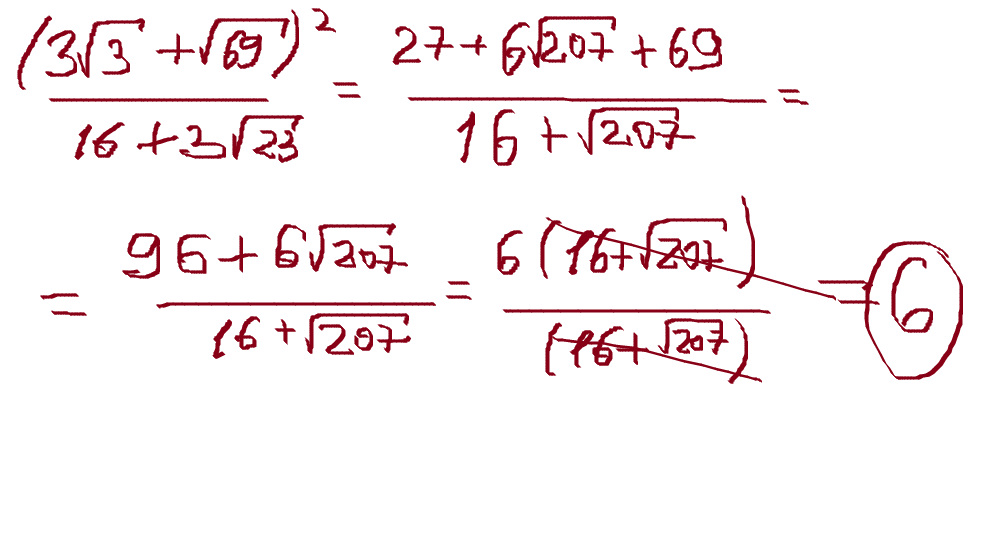 (3√3 + √69)² / 16 + 3√23 = 27 + 6√207 + 69 / 16 + √207 =
= 96 + 6√207 / 16 + √207 = 6 (16 + √207) / (16 + √207) = 6